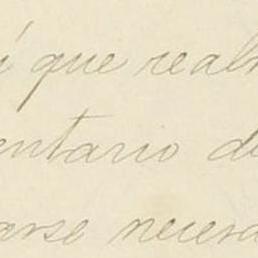 í que real
entario d
arse necesa